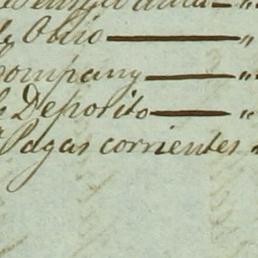 Obrio — "
Company — "
Deporito — "
Pagas corrientes "